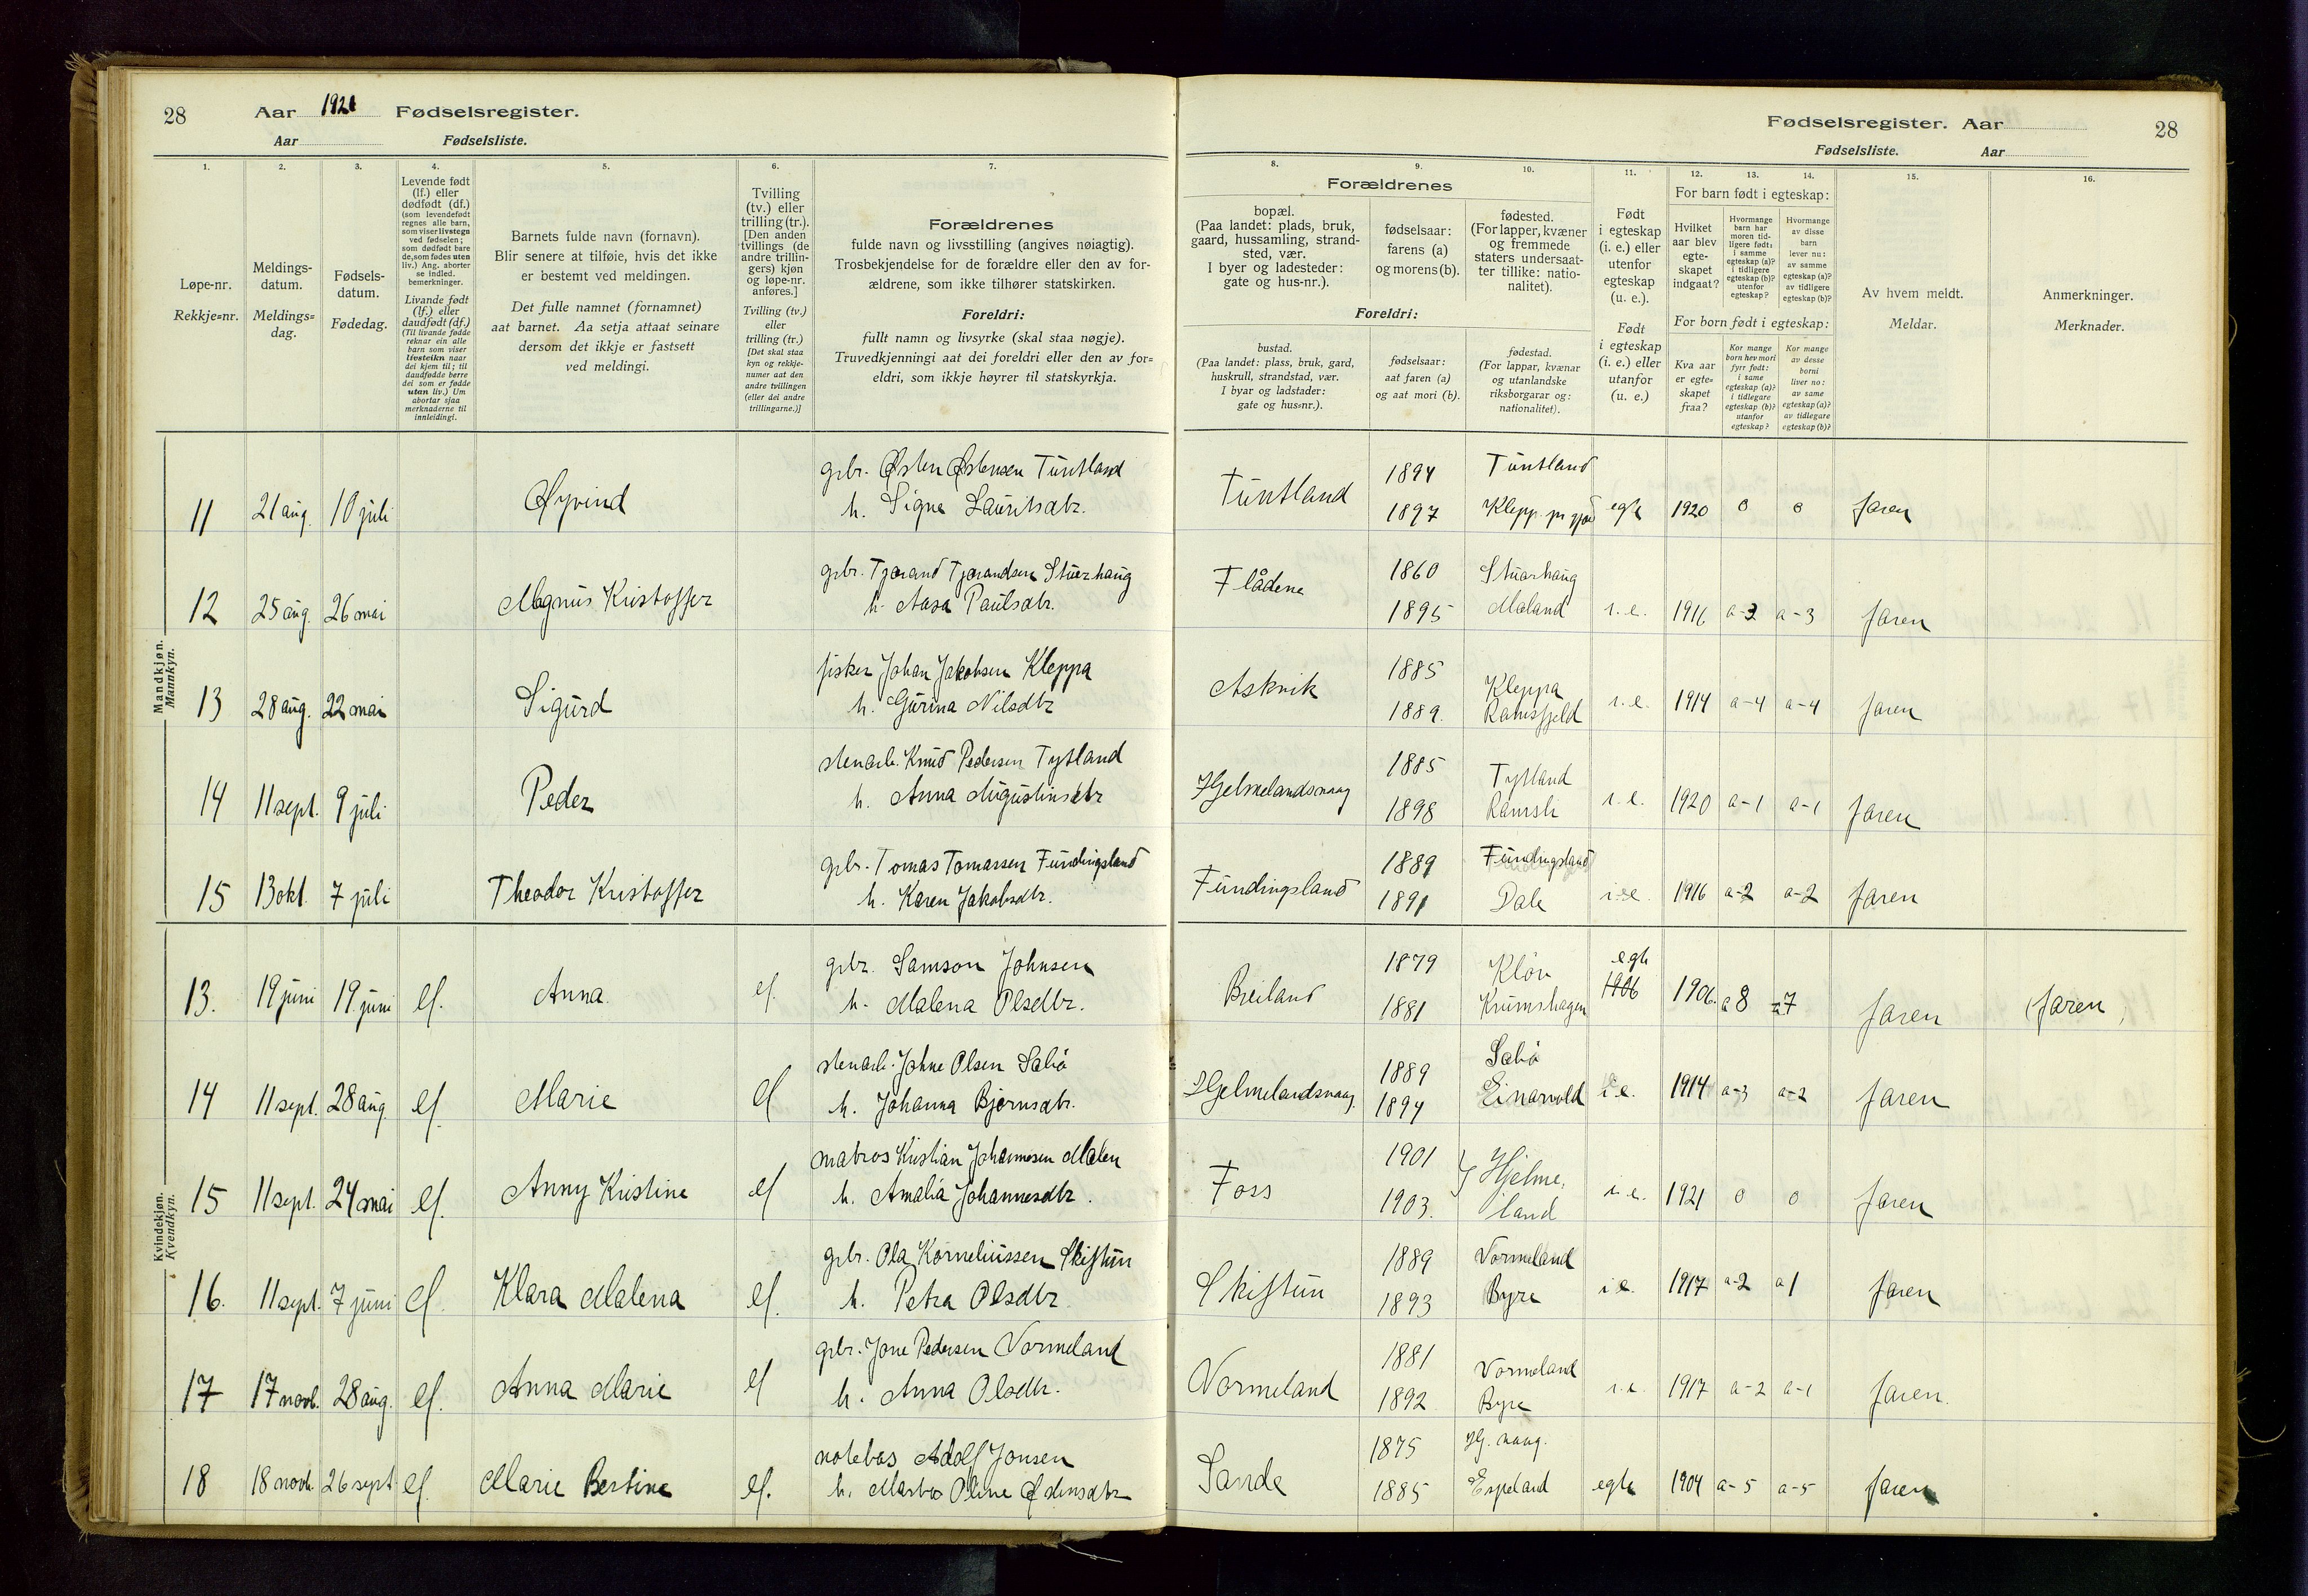 28
Aar 1921 Fødselsregister.
Aar Fødselsliste.
Fødselsregister. Aar
28
Fødselsliste. Aar
1. 2. 3. 4. 5. 6. 7.
Løpe-nr.
Rekkje=nr.
Meldings-
datum.
Meldings=
dag.
Fødsels-
datum.
Fødedag.
Levende født
(lf.) eller
dødfødt (df.)
(som levendefødt
regnes alle barn,
som viser livstegn
ved fødselen;
som dødfødt bare
de, som fødes uten
liv.) Ang. aborter
se indled.
bemerkninger.
Livande født
(lf.) eller
daudfødt (df.)
(Til livande fødde
reknar ein alle
barn som viser
livsteikn naar
dei kjem til; til
daudfødde berre
dei som er fødde
utan liv.) Um
abortar sjaa
merknaderne til
innleidingi.
Barnets fulde navn (fornavn).
Blir senere at tilføie, hvis det ikke
er bestemt ved meldingen.
Det fulle namnet (fornamnet)
aat barnet. Aa setja attaat seinare
dersom det ikkje er fastsett
ved meldingi.
Tvilling
(tv.) eller
trilling (tr.).
[Den anden
tvillings (de
andre trillin-
gers) kjøn
og løpe-nr.
anføres.]
Tvilling (tv.)
eller
trilling (tr.)
[Det skal staa
kyn og rekkje-
numer aat den
andre tvillingen
(eller dei andre
trillingarne.)]
Forældrenes
fulde navn og livsstilling (angives nøiagtig).
Trosbekjendelse for de forældre eller den av for-
ældrene, som ikke tilhører statskirken.
Foreldri:
fullt namn og livsyrke (skal staa nøgje).
Truvedkjenningi aat dei foreldri eller den av for=
eldri, som ikkje høyrer til statskyrkja.
8. 9. 10. 11. 12. 13. 14. 15. 16.
Forældrenes
bopæl.
(Paa landet: plads, bruk,
gaard, hussamling, strand-
sted, vær.
I byer og ladesteder:
gate og hus-nr.).
fødselsaar:
farens (a)
og morens (b).
fødested.
(For lapper, kvæner
og fremmede
staters undersaat-
ter tillike: natio-
nalitet).
Foreldri:
bustad.
(Paa landet: plass, bruk, gard,
huskrull, strandstad, vær.
I byar og ladstader:
gate og hus=nr.).
fødselsaar:
aat faren (a)
og aat mori (b).
fødestad.
(For lappar, kvænar
og utanlandske
riksborgarar og:
nationalitet).
Født
i egteskap
(i. e.) eller
utenfor
egteskap
(u. e.).
Født
i egteskap
(i. e.) eller
utanfor
(u. e.)
For barn født i egteskap:
Hvilket
aar blev
egte-
skapet
indgaat?
Hvormange
barn har
moren tid-
ligere født:
i samme
egteskap (a)?
i tidligere
egteskap (b)?
utenfor
egteskap?
Hvormange
av disse
barn
lever nu:
av samme
egteskap (a)?
av tidligere
egteskap (b)?
For born født i egteskap:
Kva aar
er egte=
skapet
fraa?
Kor mange
born hev mori
fyrr født:
i same
egteskap (a)?
i tidlegare
egteskap (b)?
utanfor
egteskap?
Kor mange
av desse
borni
liver no:
av same
egteskap (a)?
av tidlegare
egteskap (b)?
Av hvem meldt.
Meldar.
Anmerkninger.
Merknader.
Mandkjøn.
Mannkyn.
gbr. Østen Østensen Tuntland 1894 Tuntland
11 21 aug. 10 juli Øyvind h. Signe Lauritsdtr. Tuntland 1897 Klepp egte 1920 0 0 faren
gbr. Tjærand Tjærandsen 1860
12 25 aug. 26 mai Magnus Kristoffer h. Aasa Paulsdtr. Flådene 1895 Maland i. e. 1916 a-3 a-3 faren
fisker Johan Jakobsen Kleppa 1885 Kleppa
13 28 aug. 22 mai Sigurd h. Gurina Nilsdtr Askvik 1889. Ramsfjeld i. e. 1914 a-4 a-4 faren
stenarb. Knud Pedersen Tytland 1885 Tytland
14 11 sept. 9 juli Peder h. Anna Augustinsdtr Hjelmelandsvaag 1898 Ramsli i. e. 1920 a-1 a-1 faren
gbr. Tomas Tomassen Fundingsland 1889 Fundingsland
15 13 okt. 7 juli Theodor Kristoffer h. Karen Jakobsdtr. Fundingsland 1891 Dale i. e. 1916 a-2 a-2 faren
Kvindekjøn.
Kvendkyn.
gbr. Samson Johnsen 1879 egte
13. 19 juni 19 juni lf. Anna lf. h. Malena Olsdtr. Breiland 1881 Krumshagen 1906 1906. a 8 a 7 faren (faren
stenarb. Johne Olsen Sabø 1889 Sabø
14 11 sept. 28 aug. lf. Marie lf h. Johanna Bjørnsdtr. Hjelmelandsvaag. 1894 Einarvold i. e. 1914 a-3 a-2 faren
matros Kristian Johannesen Malen 1901 Hjelme,
15 11 sept. 24 mai lf. Anny Kristine lf h. Amalia Johannesdtr. Foss 1903. land i. e. 1921 0 0 faren
gbr. Ola Korneliussen Skiftun 1889 Vormeland
16. 11 sept. 7 juni lf. Klara Malena lf. h. Petra Olsdtr Skiftun 1893 Byre i. e. 1917 a-2 a 1 faren
gbr. Jone Pedersen Vormeland 1881 Vormeland
17 17 novb. 28 aug. lf. Anna Marie lf h. Anna Olsdtr. Vormeland 1892 Byre i. e. 1917 a-2 a-1 faren.
notebas Adolf Jonsen 1875 Hj. vaag.
18 18 novb. 26 sept. lf. Marie Bertine lf. h. Marta Oline Sande 1885 Espeland egte 1904 a-5 a-5 faren